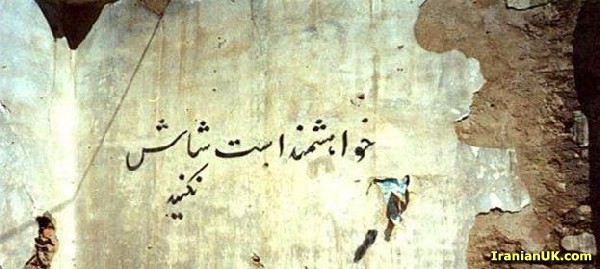 خواهشمند است شاش
نکنید
IranianUK.com